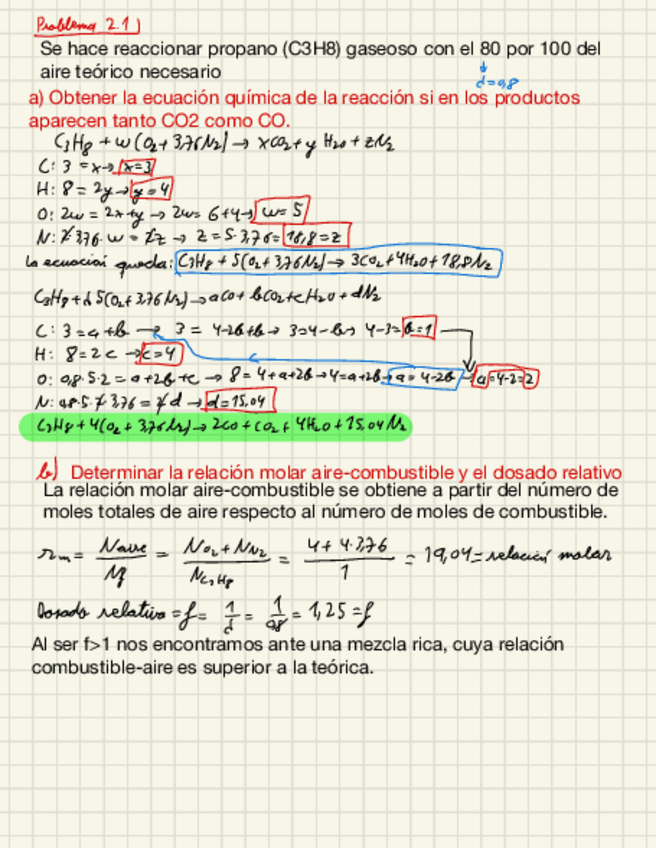 Problema 2.1)
Se hace reaccionar propano (C3H8) gaseoso con el 80 por 100 del
aire teórico necesario
↓
d=0,8
a) Obtener la ecuación química de la reacción si en los productos
aparecen tanto CO2 como CO.
C₃H₈ + w(O₂ + 3,76N₂) → xCO₂ + y H₂O + zN₂
C: 3 = x → x=3
H: 8 = 2y → y=4
O: 2w = 2x+y → 2w = 6+4 → w=5
N: 2·3,76·w = 2z → z = 5·3,76 = 18,8=z
La ecuación queda: C₃H₈ + 5(O₂ + 3,76N₂) → 3CO₂ + 4H₂O + 18,8N₂
C₃H₈ + d 5(O₂ + 3,76N₂) → aCO + bCO₂ + cH₂O + dN₂
C: 3=a+b → 3 = 4-2b+b → 3=4-b → 4-3=b=1
H: 8=2c → c=4
O: 0,8·5·2 = a+2b+c → 8 = 4+a+2b → 4=a+2b → a=4-2b → a=4-2=2
N: 0,8·5·2·3,76 = 2d → d=15,04
C₃H₈ + 4(O₂ + 3,76N₂) → 2CO + CO₂ + 4H₂O + 15,04N₂
b) Determinar la relación molar aire-combustible y el dosado relativo
La relación molar aire-combustible se obtiene a partir del número de
moles totales de aire respecto al número de moles de combustible.
rm = Naire/Nf = NO₂+NN₂/NC₃H₈ = 4+4·3,76/1 = 19,04 = relación molar
Dosado relativo = f = 1/d = 1/0,8 = 1,25 = f
Al ser f>1 nos encontramos ante una mezcla rica, cuya relación
combustible-aire es superior a la teórica.